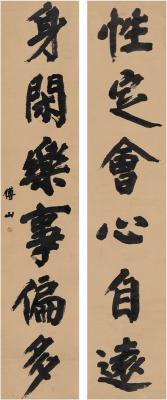 性定會心自遠
身閑樂事偏多
傅山